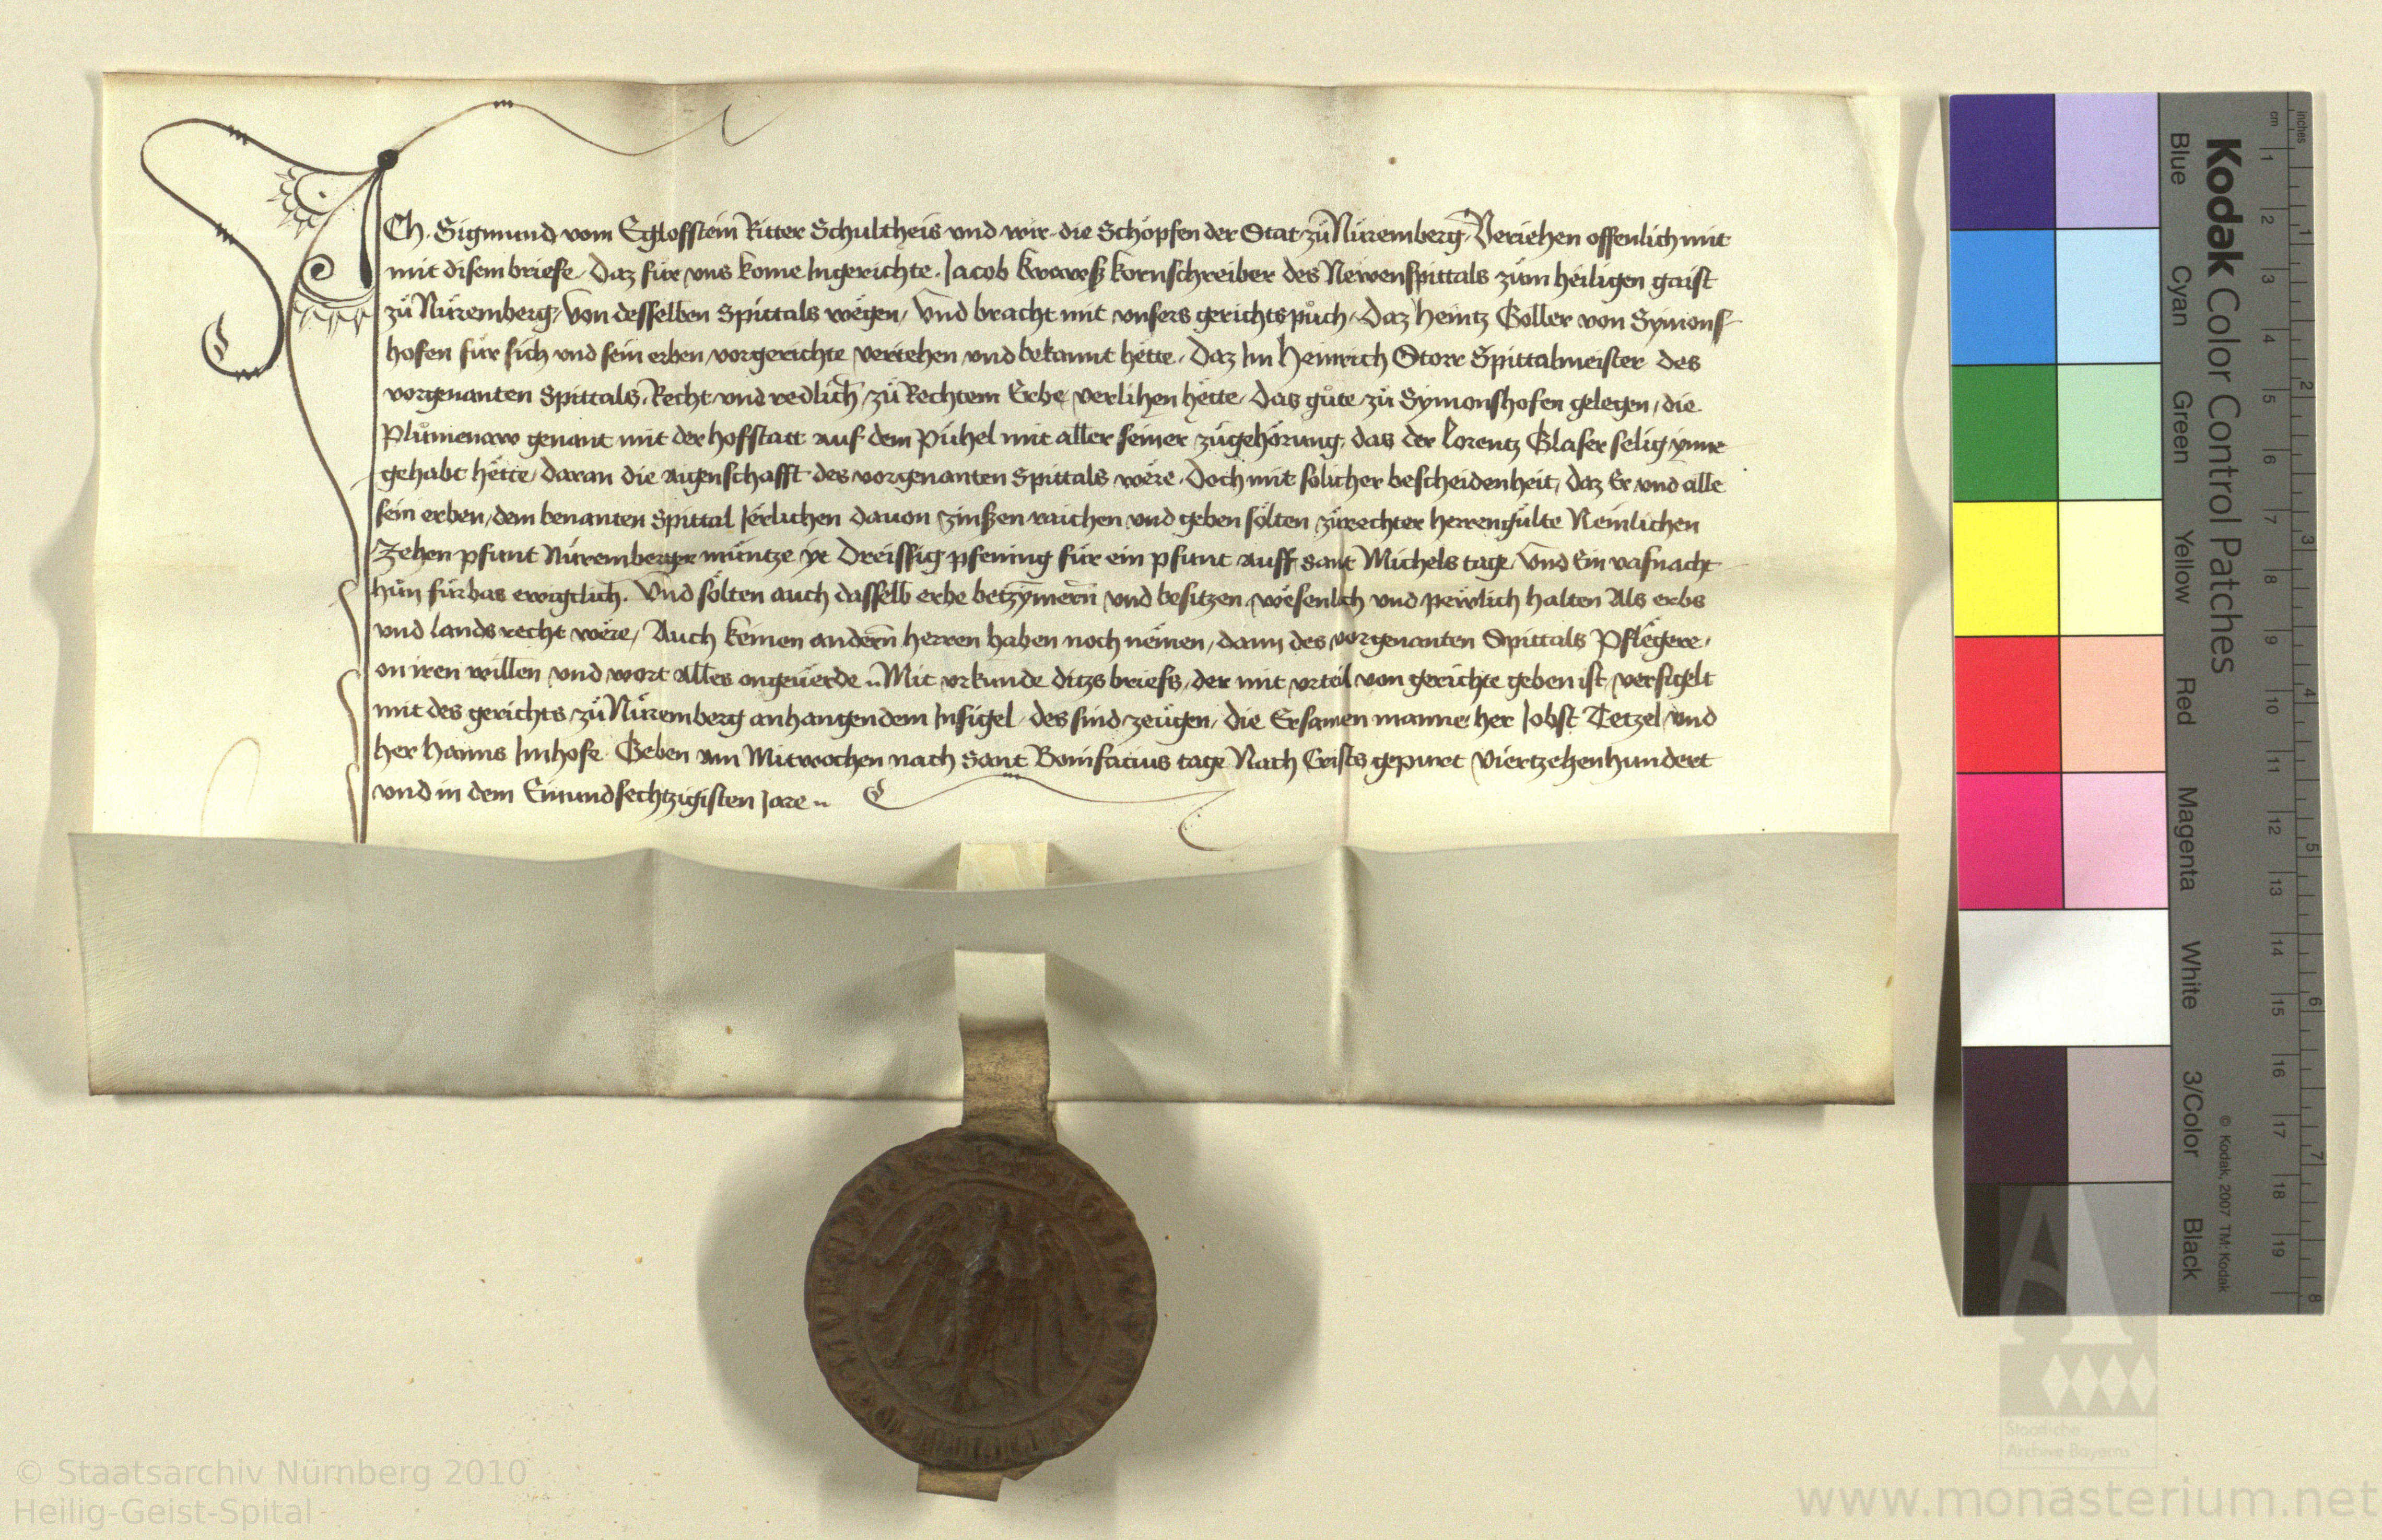 ICh Sigmund vom Egloffstein Ritter Schultheis vnd wir die Schöpfen der Stat zu Nüremberg Veriehen offenlich mit
mit disem briefe Daz für vns kome Ingerichte Jacob kornschreiber des Newenspittals zům heiligen gaist
zü Nüremberg, von desselben Spittals wëgen, Vnd bracht mit vnsers gerichtspůch, Daz Heintz Goller von Symons-
hofen für sich vnd sein erben vorgerichte veriehen vnd bekannt hëtte, Daz Im Heinrich Storr Spittalmeister des
vorgenanten Spittals, Recht vnd redlich zü Rechtem Erbe verlihen hëtte, Das gůte zü Symonshofen gelegen, die
Plůmenaw genant mit der hofstatt auf dem Pühel mit aller seiner zůgehörung, das der Lorentz Glaser selig ynne
gehabt hëtte, daran die aigenschafft des vorgenanten Spittals wëre, Doch mit sölicher bescheidenheit, daz Er vnd alle
sein erben, dem benanten Spittal Jërlichen dauon zinßen raichen vnd geben sölten zürechter herrengülte Nemlichen
Zehen pfunt Nüremberger müntze ye Dreissig pfening für ein pfunt auff sant Michels tage, Vnd Ein vasnacht
hůn fürbas ewigclich. Vnd sölten auch dasselb erbe betzymern vnd besitzen, wësenlich vnd pewlich halten Als erbs
vnd lands recht wëre, Auch keinen andern herren haben noch nëmen, dann des vorgenanten Spittals Pflëgere,
on iren willen vnd wort Alles ongeuërde .. Mit vrkunde ditzs briefs, der mit vrteil von gerichte geben ist, versigelt
mit des gerichts zü Nüremberg anhangendem Insigel, des sind zeügen, die Ersamen manne, her Jobst Tetzel vnd
her Hanns Imhofe Geben am Mitwochen nach Sant Bonifacius tage Nach Crists gepurt Viertzehenhundert
vnd in dem Einundsechtzigisten Jare ..
Kodak Color Control Patches
Blue Cyan Green Yellow Red Magenta White 3/Color Black
© Kodak, 2007 TM: Kodak
inches 1 2 3 4 5 6 7 8
cm 1 2 3 4 5 6 7 8 9 10 11 12 13 14 15 16 17 18 19
Staatliche
Archive Bayerns
© Staatsarchiv Nürnberg 2010
Heilig-Geist-Spital
www.monasterium.net